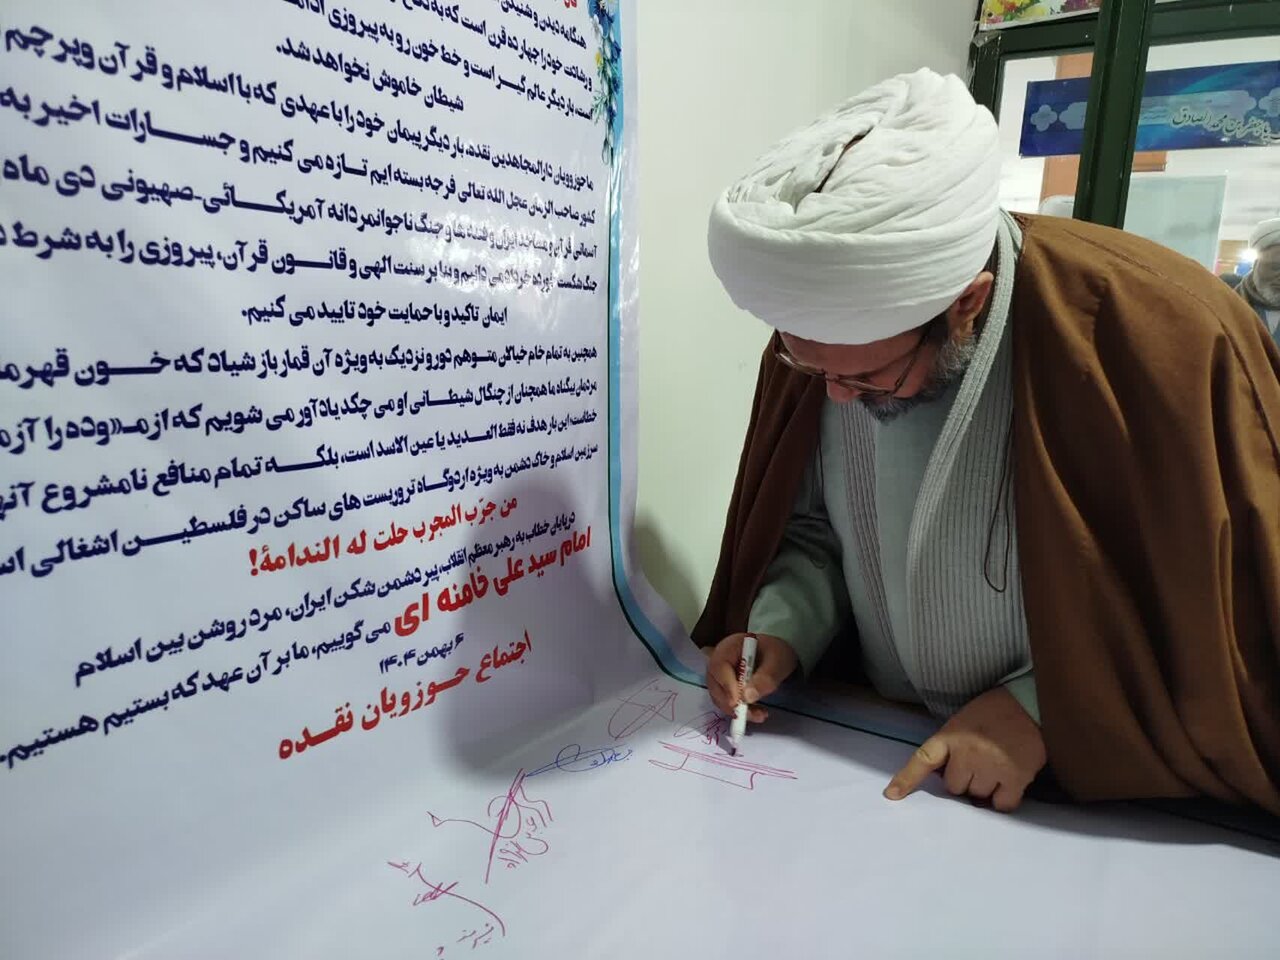 هنگامه دیدن و شنیدن
و رشادت خود را چهارده قرن است که به
است، بار دیگر عالم گیر است و خط خون رو به پیروزی
شیطان خاموش نخواهد شد.
ما حوزوویان دارالمجاهدین نقده، بار دیگر پیمان خود را با عهدی که با اسلام و قرآن و پرچم
کشور صاحب الزمان عجل الله تعالی فرجه بسته ایم تازه می کنیم و جسارات اخیر به
آسمانی قرآن و مساجد ایران و فتنه ها و جنگ ناجوانمردانه آمریکائی-صهیونی دی ماه
جنگ شکست خورده خرداد می دانیم و بنا بر سنت الهی و قانون قرآن، پیروزی را به شرط
ایمان تاکید و با حمایت خود تایید می کنیم.
همچنین به تمام خام خیالان متوهم دور و نزدیک به ویژه آن قمارباز شیاد که خون
مردمان بیگناه ما همچنان از چنگال شیطانی او می چکد یادآور می شویم که آزمـ«وده را
خطاست؛ این بار هدف نه فقط العدید یا عین الاسد است، بلکه تمام منافع نامشروع
سرزمین اسلام و خاک دشمن به ویژه اردوگاه تروریست های ساکن در فلسطین اشغالی
من جرّب المجرب حلت له الندامة!
در پایان خطاب به رهبر معظم انقلاب، پیر دشمن شکن ایران، مرد روشن بین اسلام
امام سید علی خامنه ای می گوییم، ما بر آن عهد که بستیم هستیم.
۶ بهمن ۱۴۰۴
اجتماع حوزویان نقده
یا جعفر بن محمد الصادق